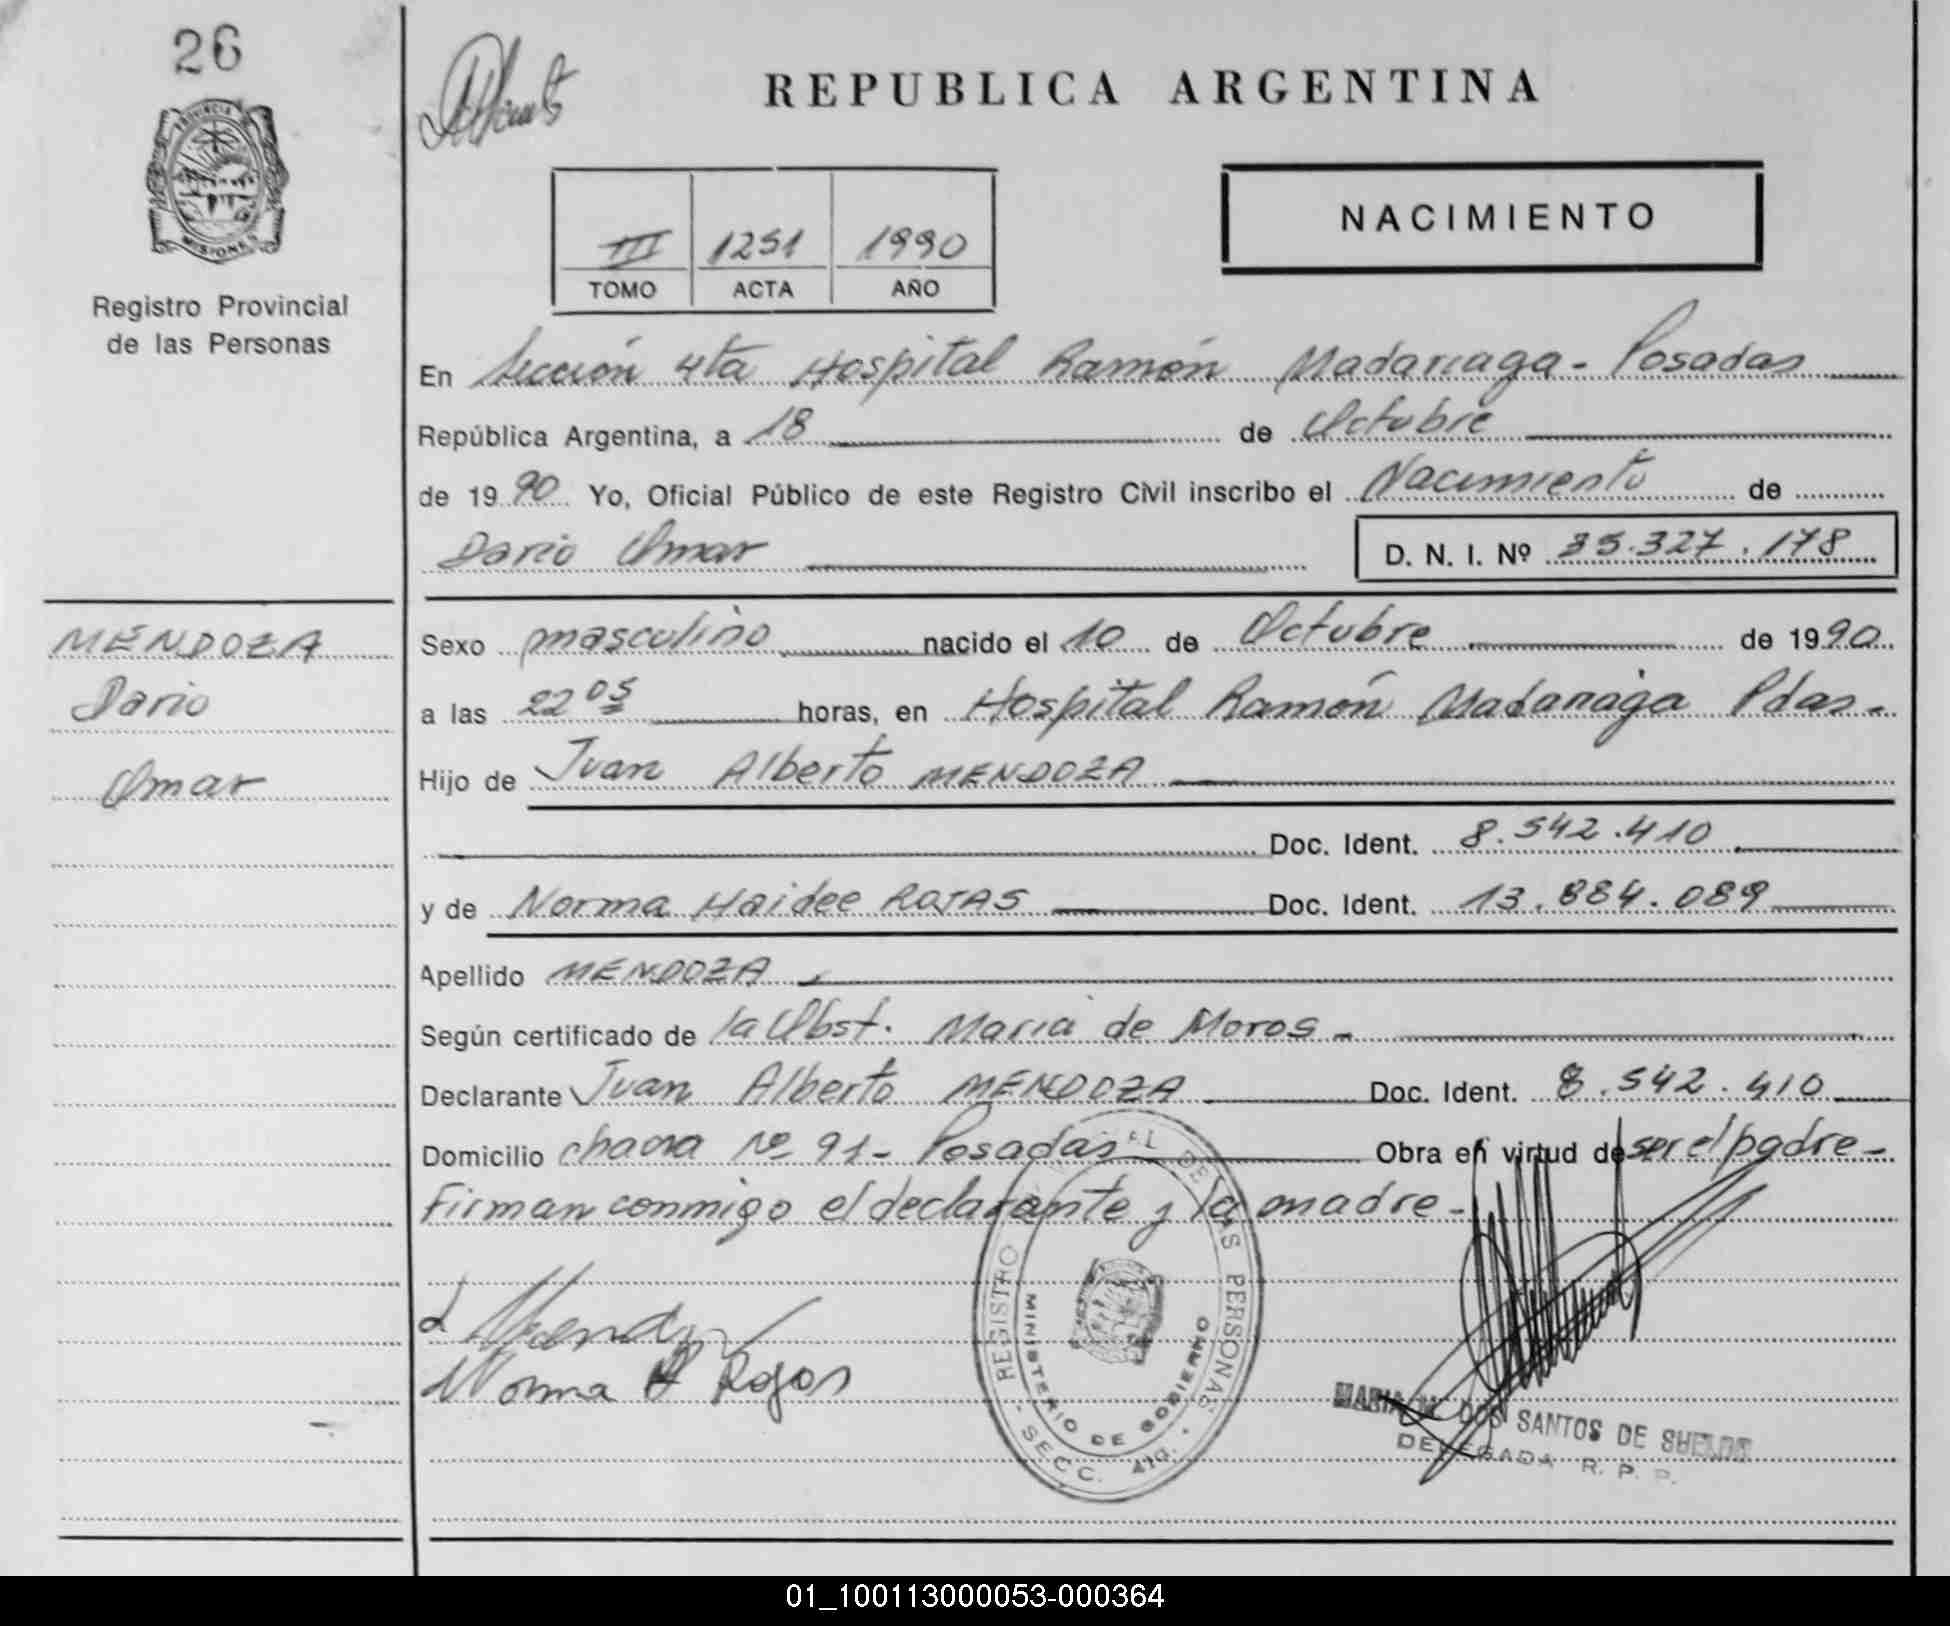 26
PROVINCIA DE
MISIONES
Registro Provincial
de las Personas
REPUBLICA ARGENTINA
NACIMIENTO
III 1251 1990
TOMO ACTA AÑO
En Sección 4ta Hospital Ramón Madariaga - Posadas
República Argentina, a 18 de Octubre
de 1990 Yo, Oficial Público de este Registro Civil inscribo el Nacimiento de
Dario Omar D. N. I. Nº 35.327.178
MENDOZA
Dario
Omar
Sexo masculino nacido el 10 de Octubre de 1990
a las 22 05 horas, en Hospital Ramón Madariaga Pdas.
Hijo de Juan Alberto MENDOZA
Doc. Ident. 8.542.410
y de Norma Haidee ROJAS Doc. Ident. 13.884.089
Apellido MENDOZA
Según certificado de la Obst. Maria de Moros -
Declarante Juan Alberto MENDOZA Doc. Ident. 8.542.410
Domicilio chacra Nº 91 - Posadas Obra en virtud de ser el padre -
Firman conmigo el declarante y la madre -
Norma H Rojas
REGISTRO PROVINCIAL DE LAS PERSONAS
MINISTERIO DE GOBIERNO
- SECC. 4ta. -
MARIA M. DOS SANTOS DE
DELEGADA R. P. P.
01_100113000053-000364